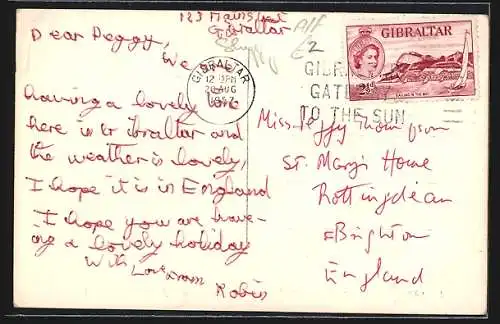 123 Main Street
Gibraltar
Dear Peggy,
We are
having a lovely time
here in Gibraltar and
the weather is lovely,
I hope it is in England
I hope you are have-
ing a lovely holiday
With Love from
Robin
£2
GIBRALTAR
12 PM
20 AUG
GIBRALTAR
GATEWAY
TO THE SUN
GIBRALTAR
2½d
SAILING IN THE BAY
Miss Peggy Thompson
St. Mary's Home
Rottingdean
Brighton
England